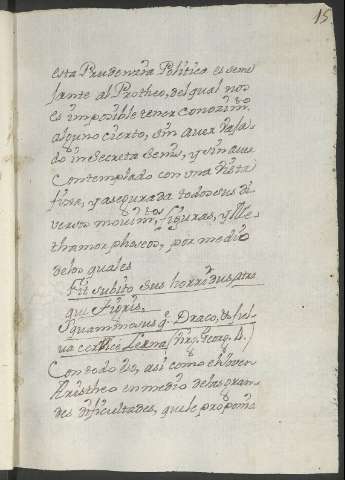 15
esta Prudenzia Politica es seme
jante al Protheo, del qual nos
es imposible tener conozim.to
alguno cierto, sin aver
do in Secreta y sin aver
Contemplado con una Vista
fixa, y asegurada todos sus di
versos movim.tos, figuras, y Me
thamorphoseos, por medio
de los quales
Fit subito Sus horridus, atra
que Tigris,
Squammosus q.e Draco, & ful
va cervice Leæna / Virg. Georg. 4. /
Con todo eso, asi como el Joven
Aristheo en medio de las gran
des dificultades, que le proponia